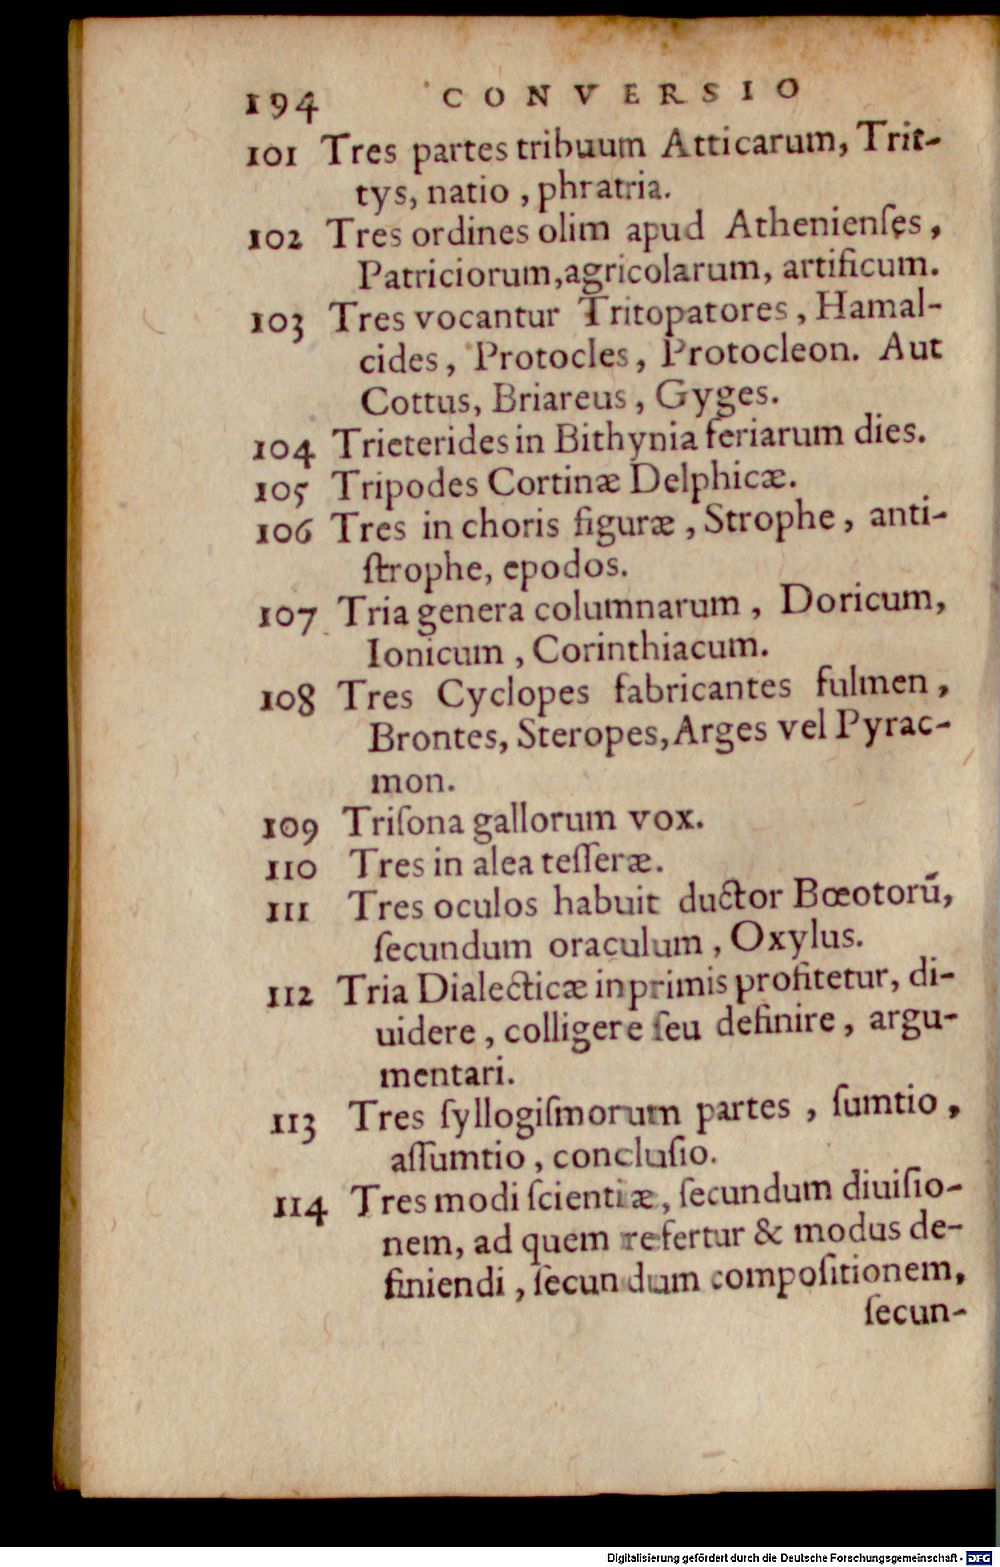 194 CONVERSIO
101 Tres partes tribuum Atticarum, Trit-
tys, natio, phratria.
102 Tres ordines olim apud Athenienſes,
Patriciorum, agricolarum, artificum.
103 Tres vocantur Tritopatores, Hamal-
cides, Protocles, Protocleon. Aut
Cottus, Briareus, Gyges.
104 Trieterides in Bithynia feriarum dies.
105 Tripodes Cortinæ Delphicæ.
106 Tres in choris figuræ, Strophe, anti-
ſtrophe, epodos.
107 Tria genera columnarum, Doricum,
Ionicum, Corinthiacum.
108 Tres Cyclopes fabricantes fulmen,
Brontes, Steropes, Arges vel Pyrac-
mon.
109 Triſona gallorum vox.
110 Tres in alea teſſeræ.
111 Tres oculos habuit ductor Bœotorū,
ſecundum oraculum, Oxylus.
112 Tria Dialecticæ inprimis profitetur, di-
uidere, colligere ſeu definire, argu-
mentari.
113 Tres ſyllogiſmorum partes, ſumtio,
aſſumtio, concluſio.
114 Tres modi ſcientiæ, ſecundum diuiſio-
nem, ad quem refertur & modus de-
finiendi, ſecundum compoſitionem,
ſecun-
Digitalisierung gefördert durch die Deutsche Forschungsgemeinschaft - DFG